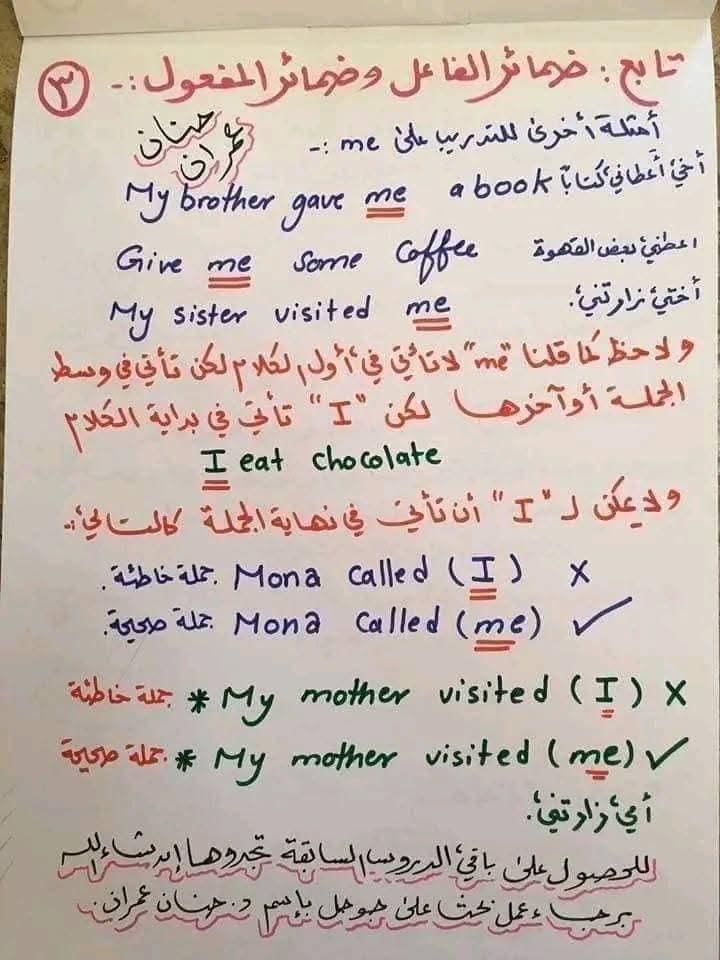 تابع : ضمائر الفاعل وضمائر المفعول :-
٣
حنان عمران
أمثلة أخرى للتدريب على me :-
My brother gave me a book أخي أعطاني كتاباً
Give me some coffee اعطني بعض القهوة
My sister visited me أختي زارتني.
ولاحظ كما قلنا "me" لا تأتي في أول الكلام لكن تأتي في وسط
الجملة أو آخرها لكن "I" تأتي في بداية الكلام
I eat chocolate
ولا يمكن لـ "I" أن تأتي في نهاية الجملة كالتالي :-
جملة خاطئة. Mona called (I) X
جملة صحيحة. Mona called (me) ✓
جملة خاطئة * My mother visited (I) X
جملة صحيحة * My mother visited (me) ✓
أمي زارتني.
للحصول على باقي الدروس السابقة تجدوها إن شاء الله
برجاء عمل بحث على جوجل بإسم د. حنان عمران.